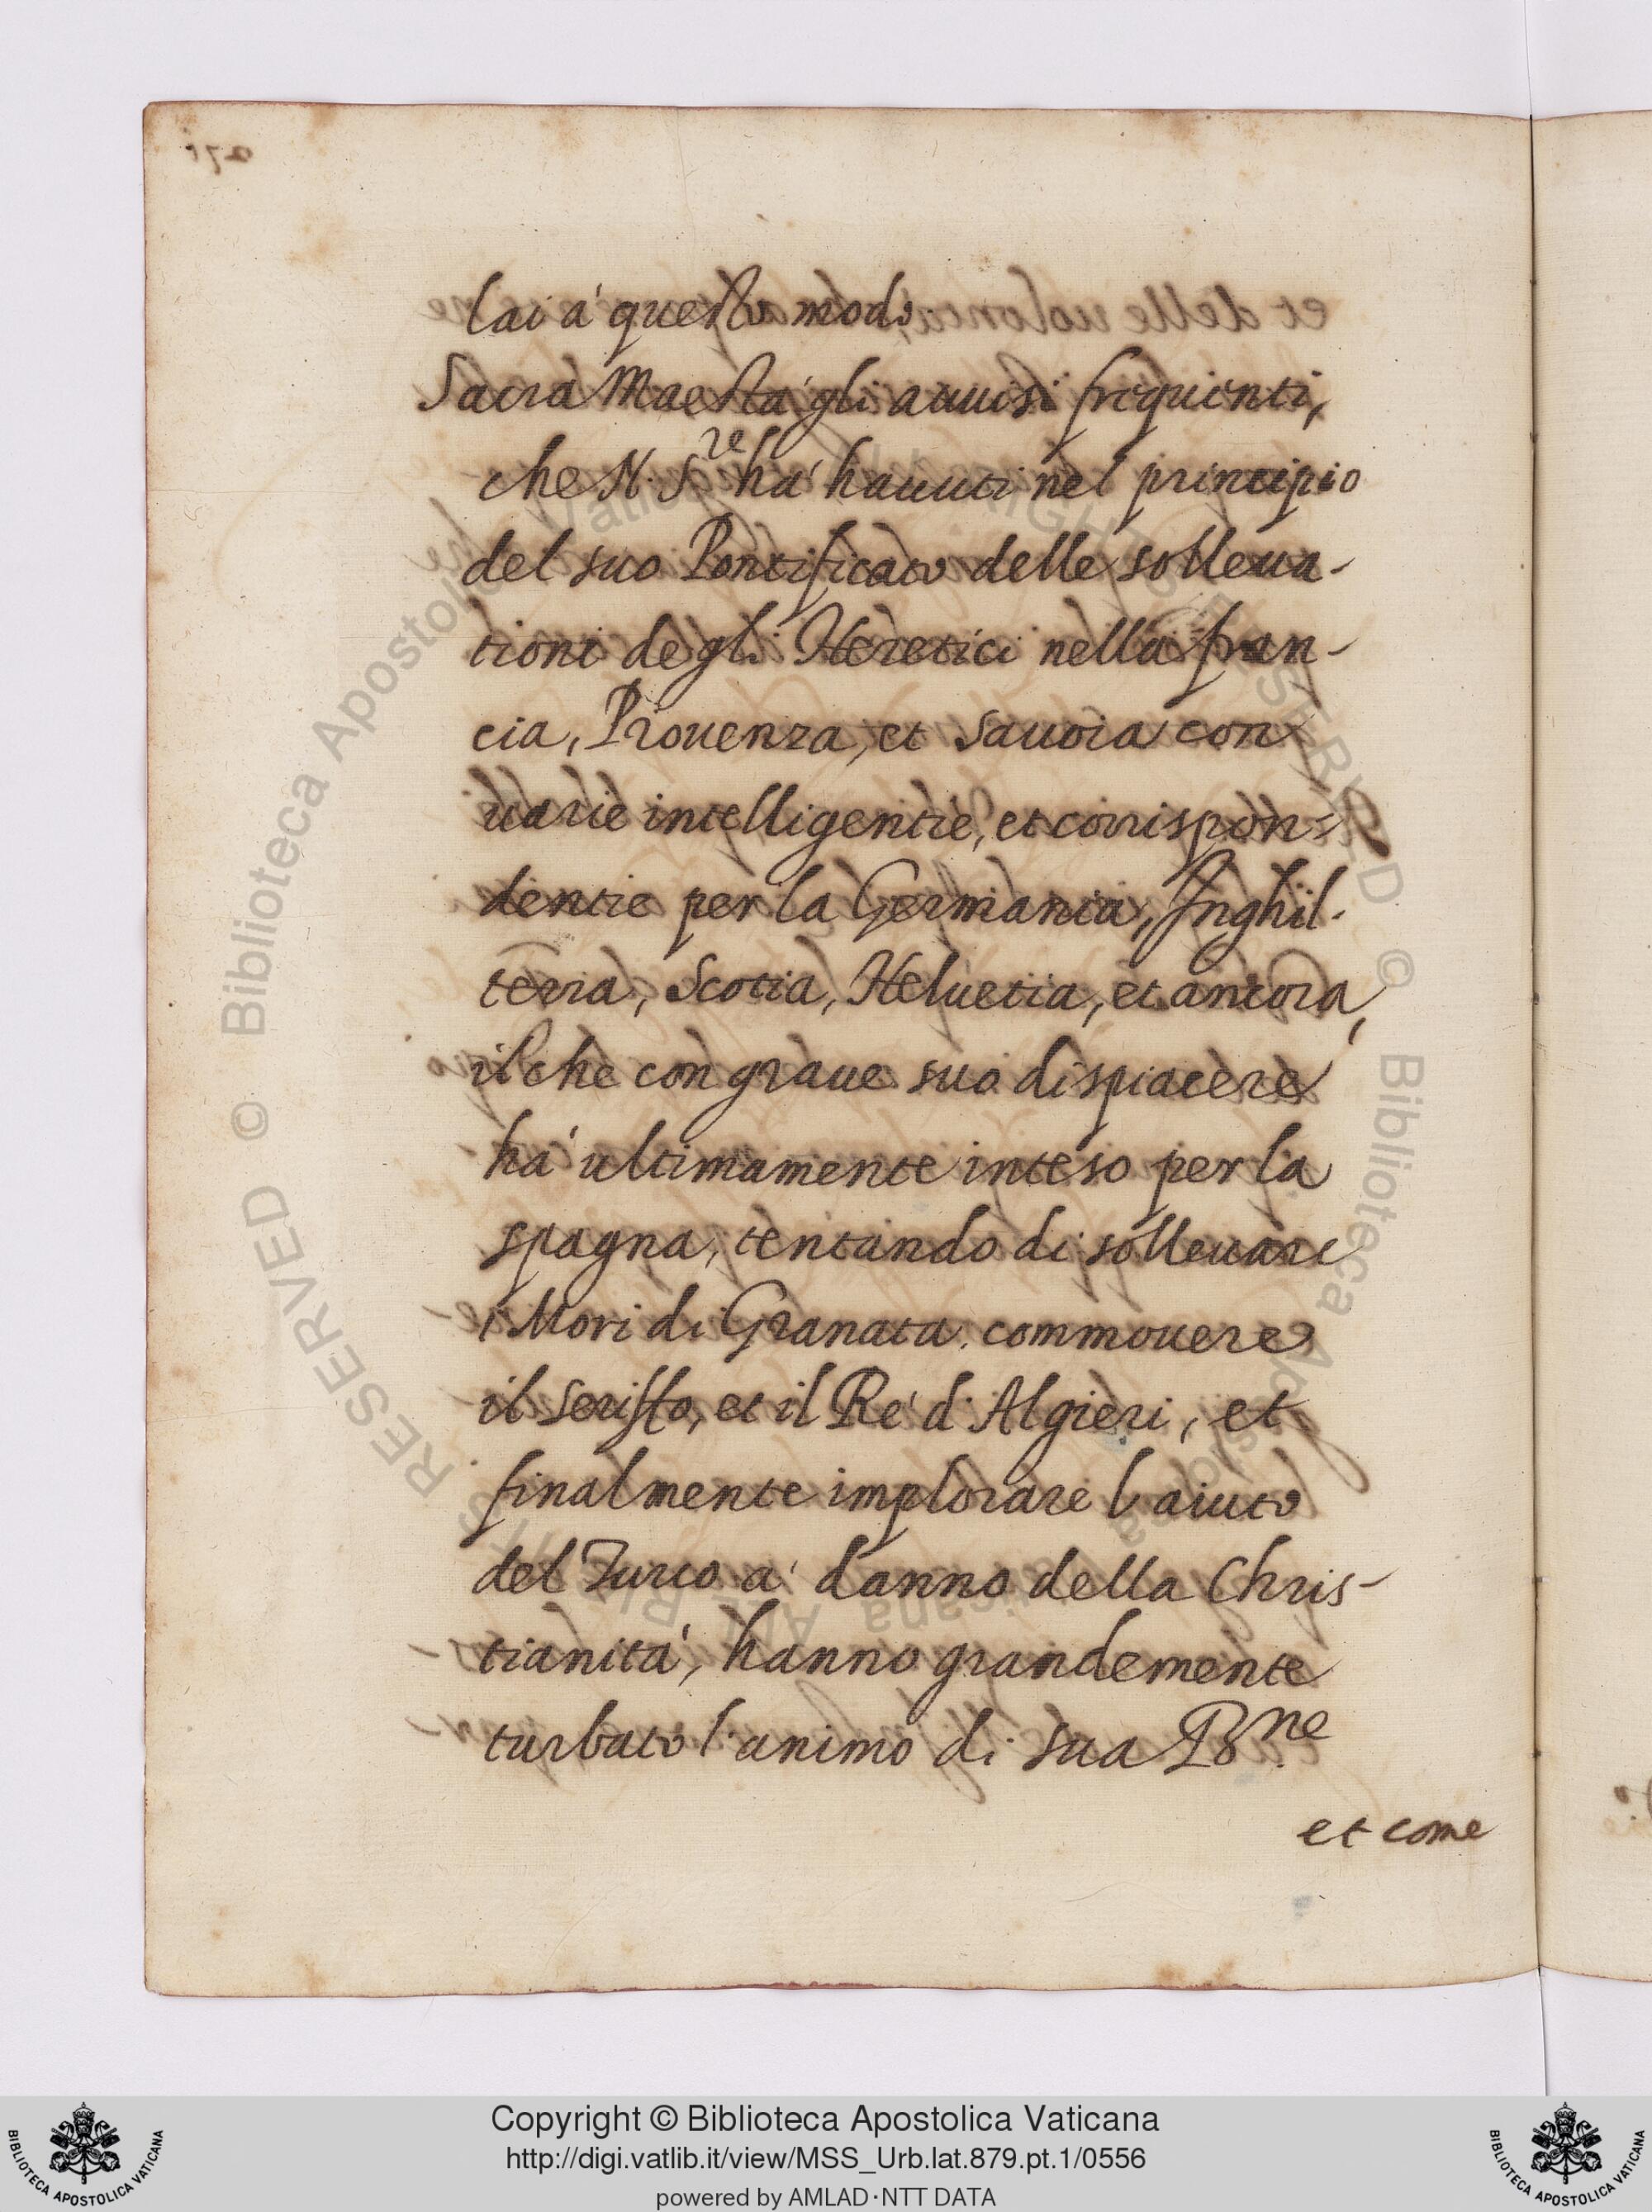 lai á questo modo,
Sacra Maestá gli auuisi frequenti,
che N. S.re há hauuti nel principio
del suo Pontificato delle solleua-
tioni degli Heretici nella fran-
cia, Prouenza, et Sauoia con
uarie intelligentie, et corrispon=
dentie per la Germania, Inghil-
terra, Scotia, Heluetia, et ancora,
il che con graue suo dispiacere
há ultimamente inteso per la
spagna, tentando di solleuare
i Mori di Granata, commouere
il Seriffo, et il Ré d'Algieri, et
finalmente implorare l'aiuto
del Turco á danno della Chris-
tianitá, hanno grandemente
turbato l'animo di sua B.ne
et come
© Biblioteca Apostolica Vaticana ALL RIGHTS RESERVED
© Biblioteca Apostolica Vaticana ALL RIGHTS RESERVED
BIBLIOTECA APOSTOLICA VATICANA
Copyright © Biblioteca Apostolica Vaticana
http://digi.vatlib.it/view/MSS_Urb.lat.879.pt.1/0556
powered by AMLAD·NTT DATA
BIBLIOTECA APOSTOLICA VATICANA